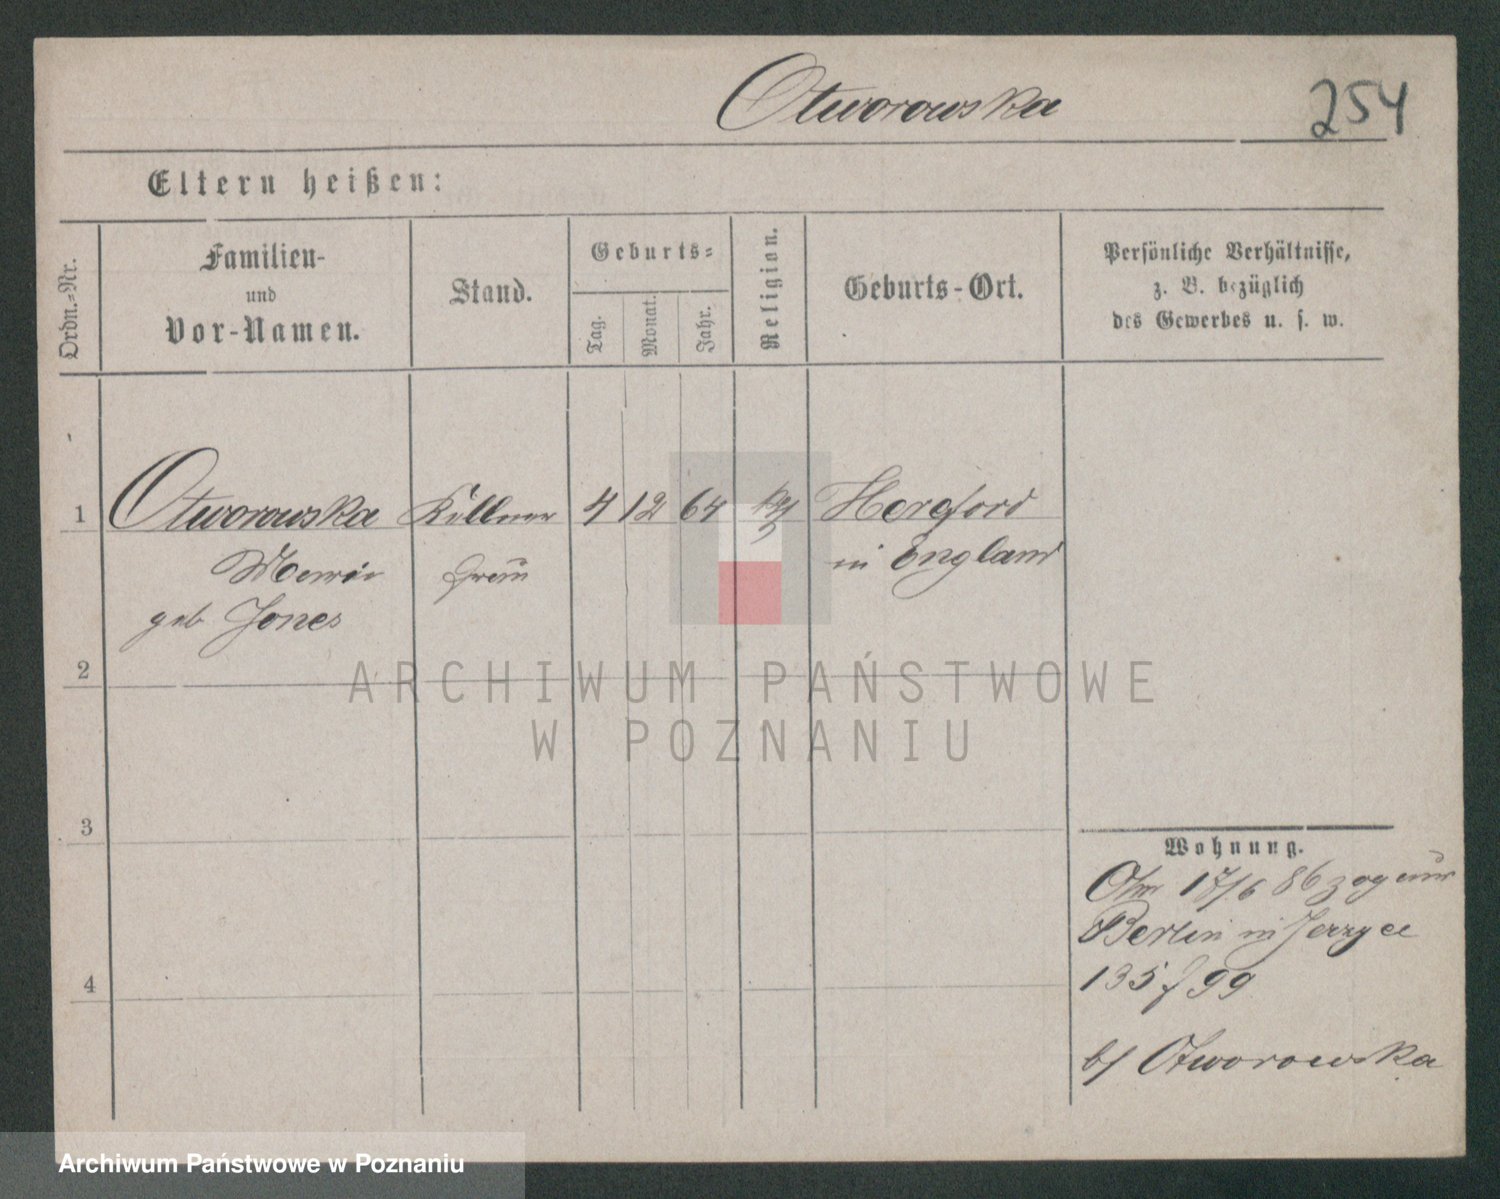 Otworowska
254
Eltern heißen:
Ordn.-Nr.
Familien-
und
Vor-Namen.
Stand.
Geburts-
Tag.
Monat.
Jahr.
Religion.
Geburts-Ort.
Persönliche Verhältnisse,
z. B. bezüglich
des Gewerbes u. s. w.
1 Otworowska Kellner 4 12 64 Hereford
frau in England
geb Jones
2
3
4
Wohnung.
17/6 86 zog
Berlin in
135 f 99
b/ Otworowska
ARCHIWUM PAŃSTWOWE
W POZNANIU
Archiwum Państwowe w Poznaniu